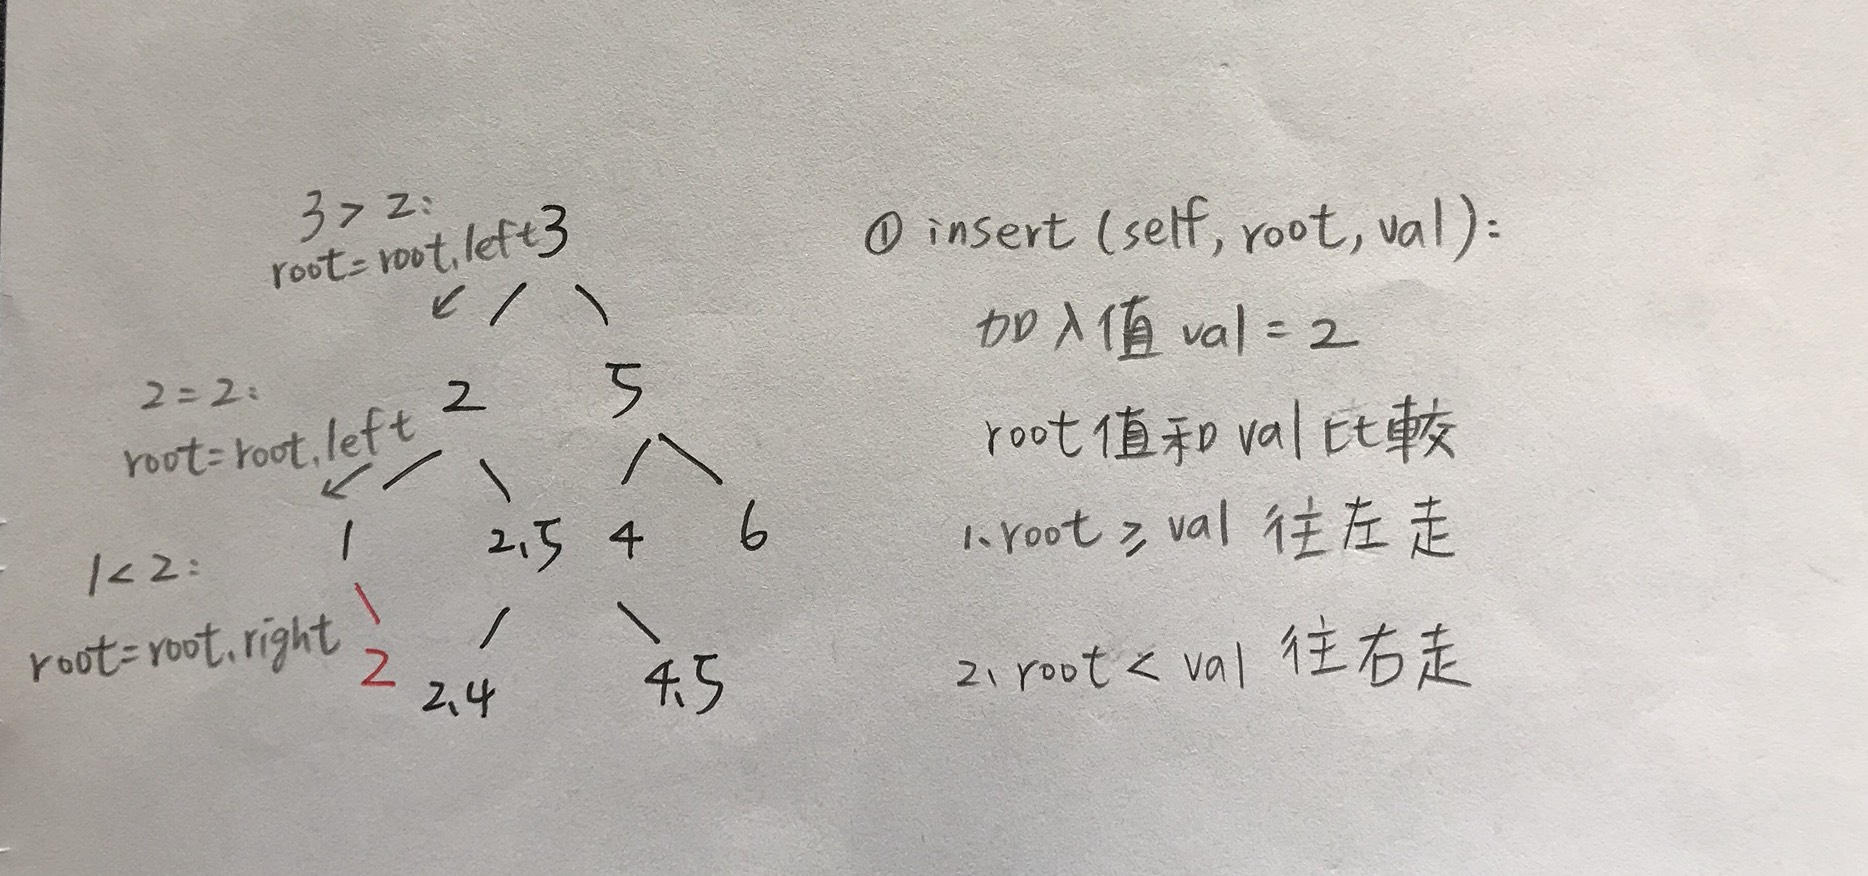 3 > 2:
root=root.left
3
2 = 2:
root=root.left
2
5
1 < 2:
root=root.right
1
2.5
4
6
2
2.4
4.5
① insert (self, root, val):
加入值 val = 2
root值和val比較
1. root ≥ val 往左走
2. root < val 往右走